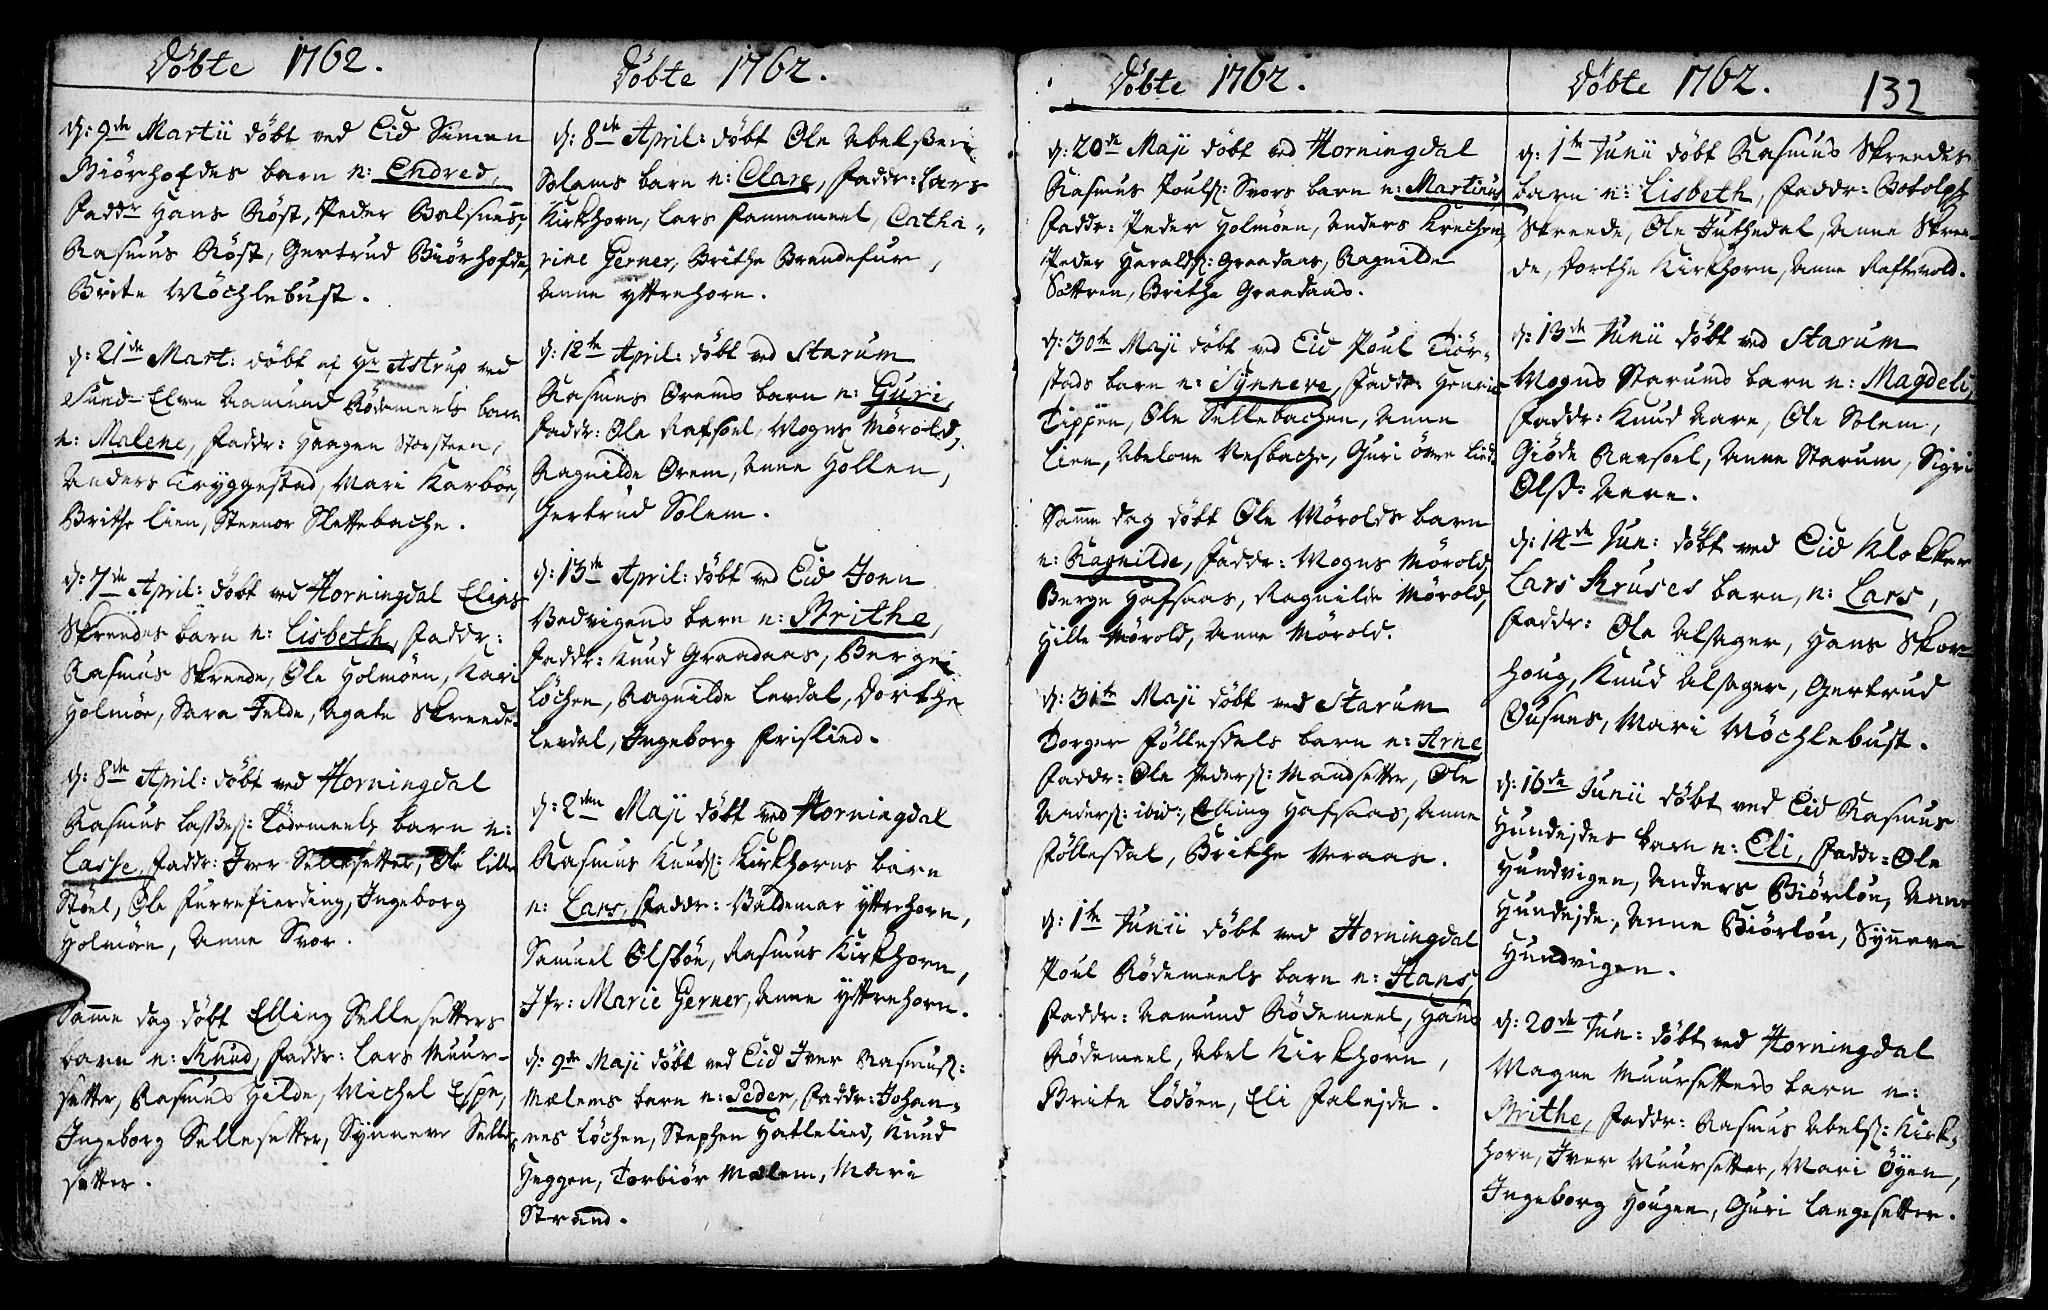 Döbte 1762.
d: 9de Martii döbt ved Eid Simen
Biörhofdes barn n: Endred,
Faddr Hans Röst, Peder Balsnes,
Rasmus Röst, Gertrud Biörhofde,
Brite Möchlebust.
d: 21de Mart: döbt af Hr Astrup ved
Sund-Elven Aamund Rödemeels barn
n: Malene, Faddr: Haagen Storsteen,
Anders Tryggestad, Mari Karböe,
Brithe Lien, Steenor Slettebache.
d: 7de April: döbt ved Horningdal Elias
Skreedes barn n: Lisbeth, Faddr:
Rasmus Skreede, Ole Holmöen, Kari
Holmöe, Sara Felde, Agate Skreede.
d: 8de April: döbt ved Horningdal
Rasmus Lasses: Tödemeels barn n:
Lasse, Faddr: Iver Sellesetter, Ole Lille
Stöel, Ole Furrefierding, Ingeborg
Holmöen, Anne Svor.
Samme dag döbt Elling Sellesetters
barn n: Knud, Faddr: Lars Muur-
setter, Rasmus Hilde, Michel Espe,
Ingeborg Sellesetter, Synneve Selle-
setter.
Döbte 1762.
d: 8de April: döbt Ole Abelsen
Solems barn n: Clare, Faddr: Lars
Kirkhorn, Lars Fannemeel, Catha-
rine Gerner, Brithe Brendefur,
Anne Yttrehorn.
d: 12te April: döbt ved Starum
Rasmus Orems barn n: Guri,
Faddr: Ole Rafsoel, Mogns Mörold,
Ragnilde Orem, Anne Hollen,
Gertrud Solem.
d: 13de April: döbt ved Eid Jonn
Vedvigens barn n: Brithe,
Faddr: Knud Graadaas, Berge
Löchen, Ragnilde Levdal, Dorthe
Levdal, Ingeborg Frislied.
d: 2den Maji döbt ved Horningdal
Rasmus Knuds: Kirkhorns barn
n: Lars, Faddr: Baldemar Yttrehorn,
Samuel Olsböe, Rasmus Kirkhorn,
Jfr: Marie Gerner, Anne Yttrehorn.
d: 9de Maji döbt ved Eid Iver Rasmus:
Mælems barn n: Peder, Faddr: Johan-
nes Löchen, Stephen Hattelied, Knud
Heggen, Torbiör Mælem, Mari
Strand.
Döbte 1762.
d: 20de Maji döbt ved Horningdal
Rasmus Pouls: Svors barn n: Martinus
Faddr: Peder Holmöen, Anders Krechen,
Peder Haralds: Graadaas, Ragnilde
Sættren, Brithe Graadaas.
d: 30te Maji döbt ved Eid Poul Tiör-
stads barn n: Synneve, Faddr: Henric
Tippen, Ole Sellebachen, Anne
Lien, Abelone Nesbache, Guri övre Lied.
Samme dag döbt Ole Mörolds barn
n: Ragnilde, Faddr: Mogns Mörold,
Berge Hafsaas, Ragnilde Mörold,
Hille Mörold, Anne Mörold.
d: 31te Maji döbt ved Starum
Torger Föllesdals barn n: Arne
Faddr: Ole Peders: Mandsetter, Ole
Anders: ibid:, Elling Hafsaas, Anne
Föllesdal, Brithe Veraas.
d: 1te Junii döbt ved Horningdal
Poul Rödemeels barn n: Hans,
Faddr: Aamund Rödemeel, Hans
Rödemeel, Abel Kirkhorn,
Brite Lödöen, Eli Falejde.
Döbte 1762.
132
d: 1te Junii döbt Rasmus Skreedes
barn n: Lisbeth, Faddr: Botolph
Skreede, Ole Juthedal, Anne Skree-
de, Dorthe Kirkhorn, Anne Raftevold.
d: 13de Junii döbt ved Starum
Mogns Starums barn n: Magdeli,
Faddr: Knud Aare, Ole Solem,
Giöde Raafsoel, Anne Starum, Sigri
Olsd: Aare.
d: 14de Jun: döbt ved Eid Klokker
Lars Kruses barn, n: Lars,
Faddr: Ole Alsager, Hans Skor-
houg, Knud Alsager, Gertrud
Ousnes, Mari Möchlebust.
d: 16de Junii döbt ved Eid Rasmus
Hundejdes barn n: Eli, Faddr: Ole
Hundvigen, Anders Biörlöu, Anne
Hundejde, Anne Biörlöu, Synneve
Hundvigen.
d: 20de Jun: döbt ved Horningdal
Magne Muursetters barn n:
Brithe, Faddr: Rasmus Abels: Kirk-
horn, Iver Muursetter, Mari Öyen,
Ingeborg Hougen, Guri Langesetter.